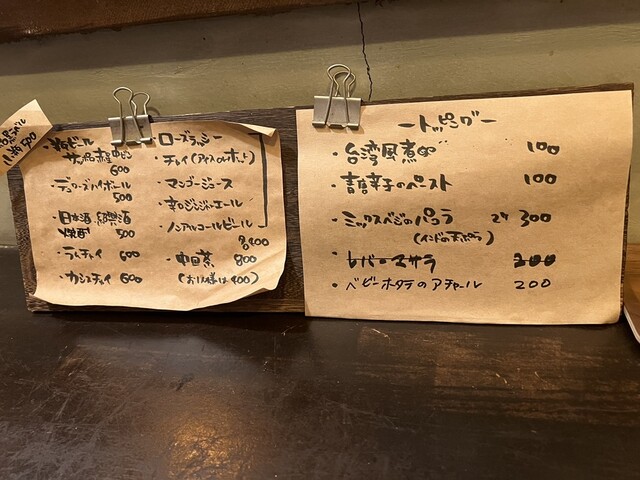 ・瓶ビール
サッポロ赤星 中びん
600
・デュワーズハイボール
500
・日本酒、紹興酒
焼酎 500
・ラムチャイ 600
・カシスチャイ 600
・ローズラッシー
・チャイ(アイスorホット)
・マンゴージュース
・辛口ジンジャーエール
・ノンアルコールビール
各400
・中国茶 800
(おかわりは400)
ートッピングー
・台湾風煮卵 100
・青唐辛子のペースト 100
・ミックスベジのパコラ 2ケ 300
(インドの天ぷら)
・レバーマサラ 200
・ベビーホタテのアチャール 200